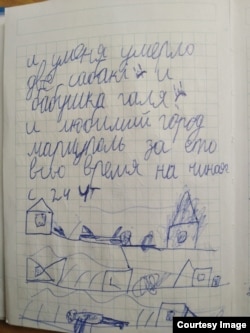 и уменя умерло
две сабаки и
бабушка галя
и любимий город
мариуполь за это
всю время на чиная
с 24 чт
Courtesy Image